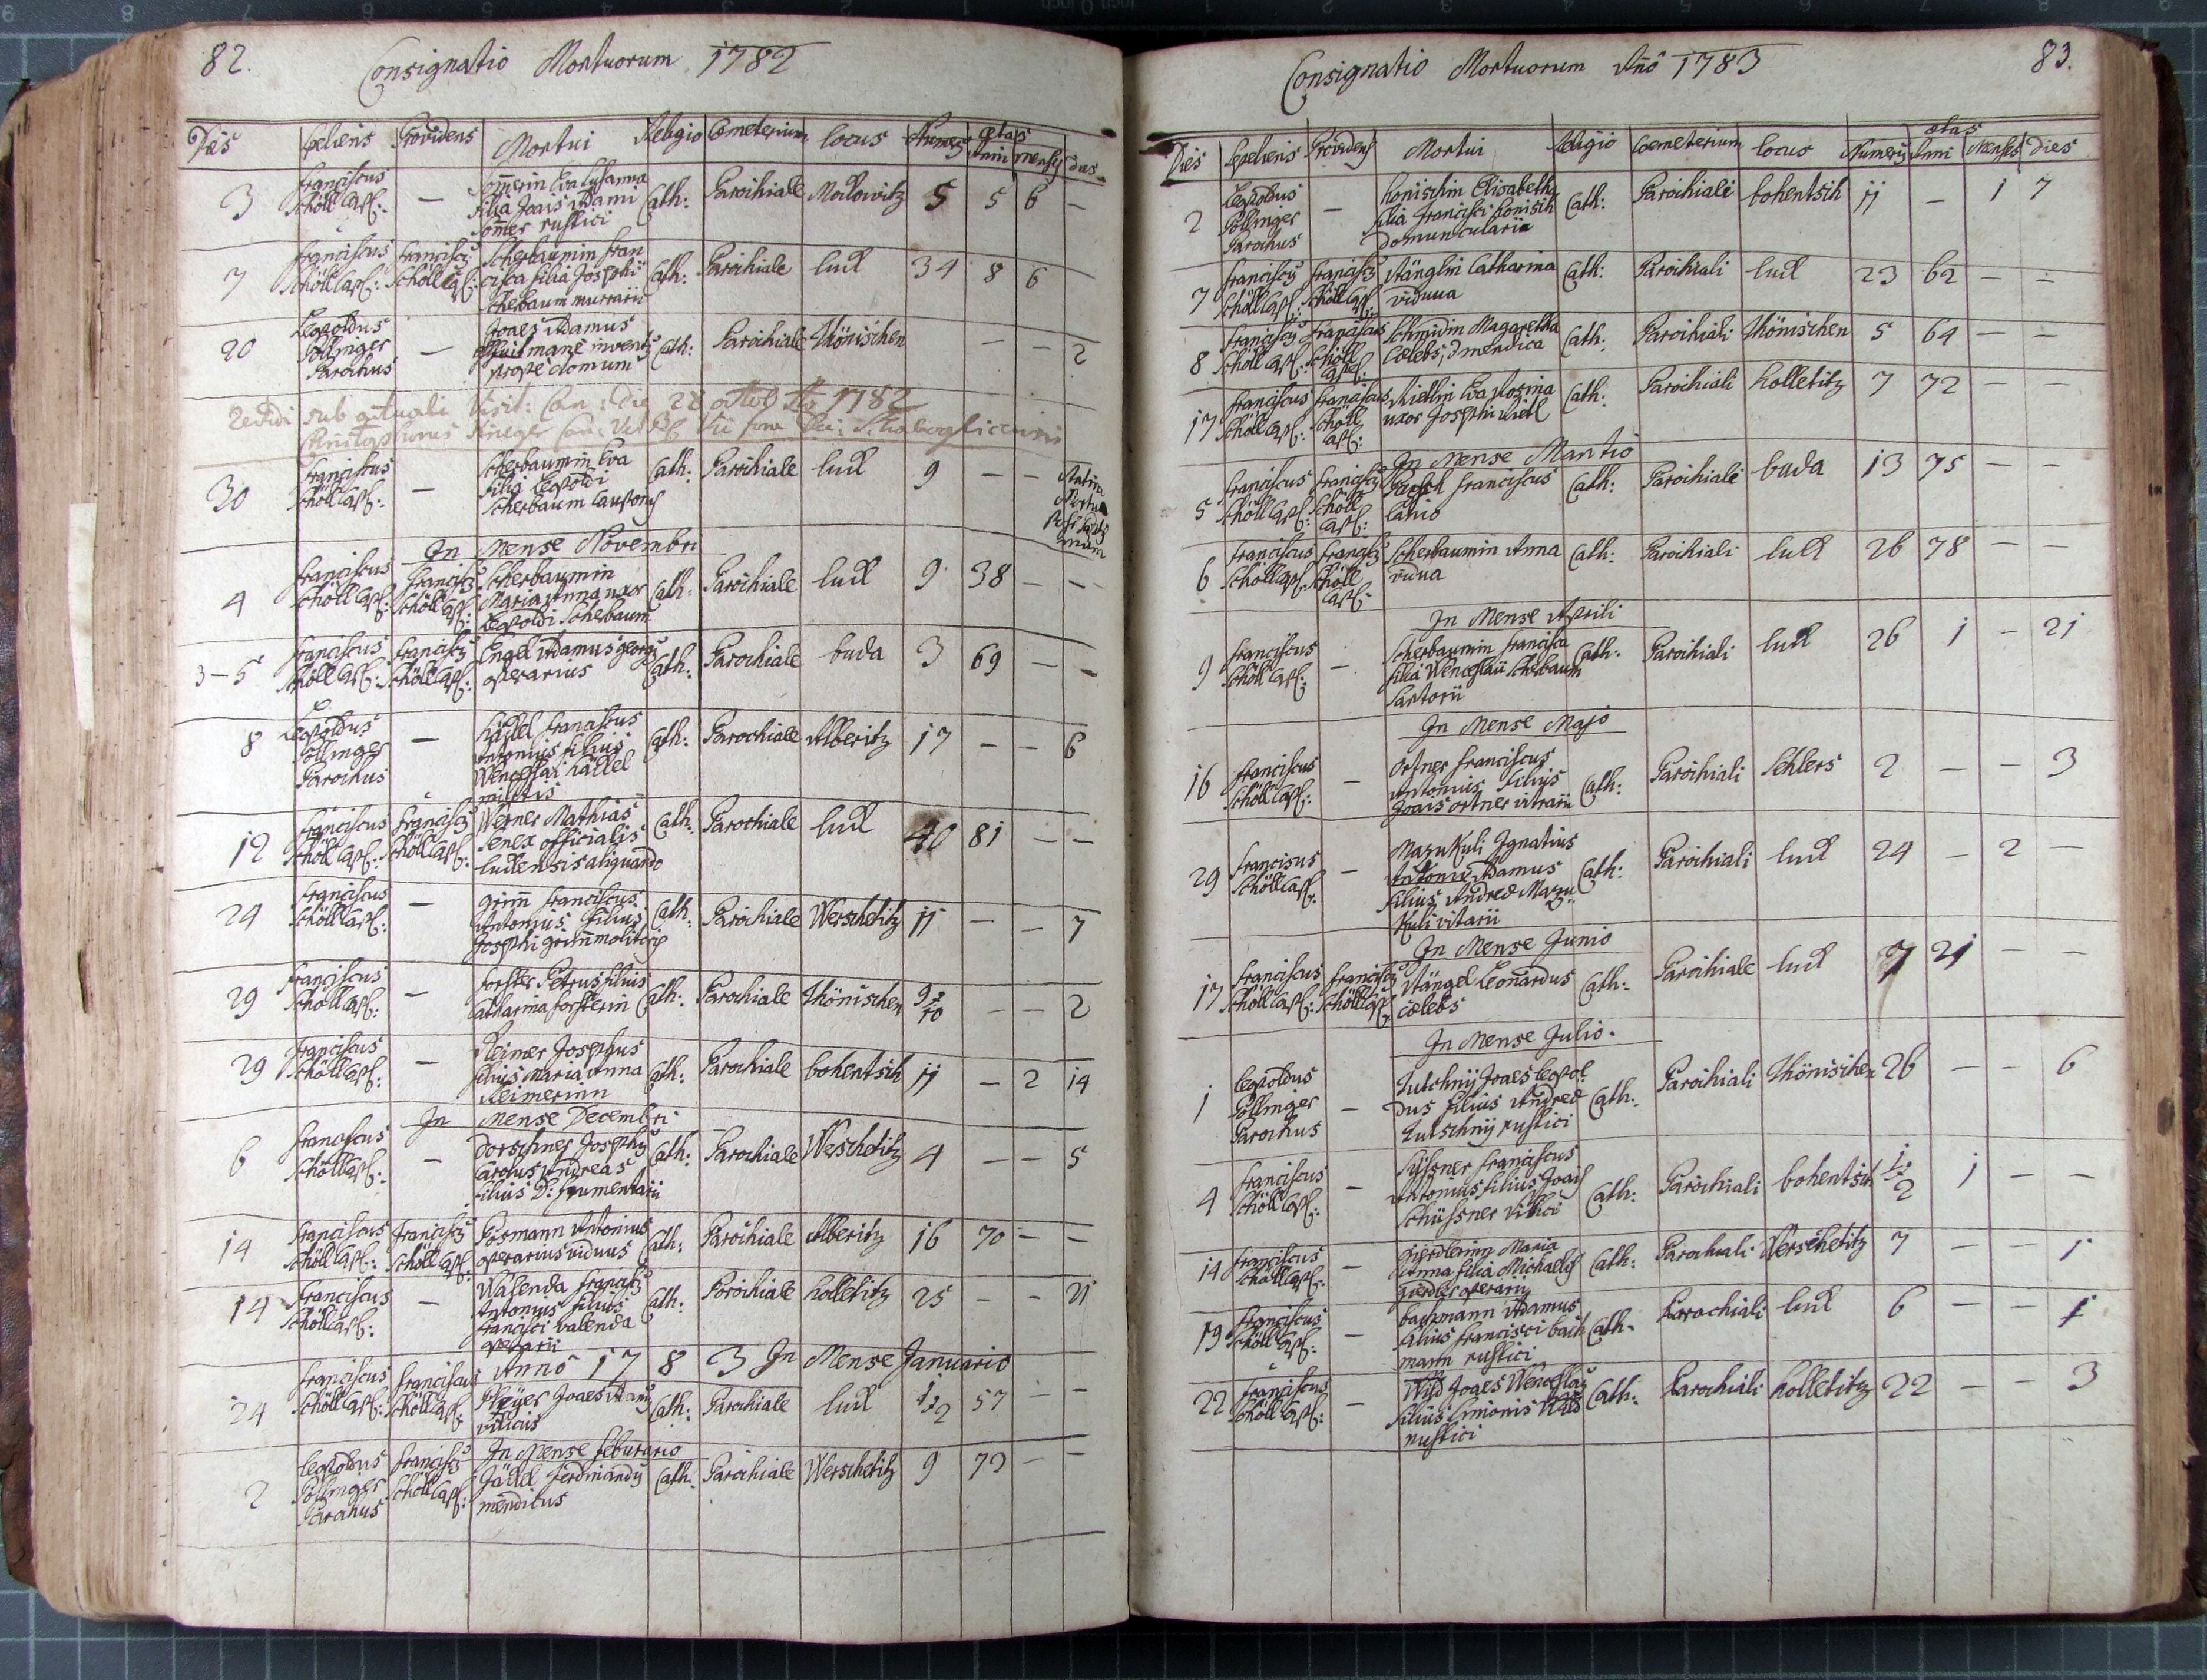 82.
Consignatio Mortuorum 1782
Dies Sepeliens Providens Mortui Religio Cemeterium locus Numerus ætas Anni menses dies
3 Franciscus Schöll Cap: — filia Joais Adami rustici Cath: Parochiale 5 5 6 —
7 Franciscus Schöll Cap: Franciscus Schöll Cap: Scherbaumin Francisca filia Josephi Scherbaum murarii Cath: Parochiale lud 34 8 6
20 Leopoldus Söllinger Parochus — Joaes Adamus prope domum Cath: Parochiale Thönischen — — 2
Visit: Can: die 28 1782
30 Franciscus Schöll Cap: — Scherbaumin Eva Leopoldi Scherbaum Cath: Parochiale lud 9 — —
In Mense Novembri
4 Franciscus Schöll Cap: Franciscus Schöll Cap: Scherbaumin Maria Anna uxor Leopoldi Scherbaum Cath: Parochiale lud 9 38 — —
3-5 Franciscus Schöll Cap: Franciscus Schöll Cap: Engel Adamus georg operarius Cath: Parochiale buda 3 69 — —
8 Leopoldus Söllinger Parochus — Franciscus Antonius filius Wenceslai militis Cath: Parochiale Alberitz 17 — — 6
12 Franciscus Schöll Cap: Franciscus Schöll Cap: Werner Mathias Senex officialis ludensis aliquando Cath: Parochiale lud 40 81 — —
24 Franciscus Schöll Cap: — grim̄ Franciscus Antonius filius Josephi grim̄ molitoris Cath: Parochiale Werschetitz 11 — — 7
29 Franciscus Schöll Cap: — Forster Petrus filius Catharina Forsterin Cath: Parochiale Thönischen — — 2
29 Franciscus Schöll Cap: — Reimer Josephus filius Maria Anna Reimerinn Cath: Parochiale bohentsch 11 — 2 14
In Mense Decembri
6 Franciscus Schöll Cap: — Dorschner Josephus Carolus Andreas filius D: frumentarii Cath: Parochiale Weschetitz 4 — — 5
14 Franciscus Schöll Cap: Franciscus Schöll Cap: Posmann Antonius operarius viduus Cath: Parochiale Alberitz 16 70 — —
14 Franciscus Schöll Cap: — Walenda Franciscus Antonius filius Francisci Valenda operarii Cath: Parochiale kolletitz 25 — — 21
Anno 1783 In Mense Januario
24 Franciscus Schöll Cap: Franciscus Schöll Cap: Joaes Adam villicus Cath: Parochiale lud 57 — —
In Mense februario
2 Leopoldus Söllinger Parochus Franciscus Schöll Cap: Jäckl Ferdinandus mendicus Cath: Parochiale Werschetitz 9 — —
83.
Consignatio Mortuorum Anō 1783
Dies Sepeliens Providens Mortui Religio Coemeterium locus Numerus ætas Anni Menses Dies
2 Leopoldus Söllinger Parochus — Konischin Elisabetha filia Francisci Konisch domuncularii Cath: Parochiali bohentsch 11 — 1 7
7 Franciscus Schöll Cap: Franciscus Schöll Cap: Stänglin Catharina vidua Cath: Parochiali lud 23 62 — —
8 Franciscus Schöll Cap: Franciscus Schöll Cap: Schmidin Magaretha Cælebs, mendica Cath: Parochiali Thönischen 5 64 — —
17 Franciscus Schöll Cap: Franciscus Schöll Cap: Riedlin Eva Rosina uxor Josephi Riedl Cath: Parochiali kolletitz 7 72 — —
In Mense Martio
5 Franciscus Schöll Cap: Franciscus Schöll Cap: Franciscus lanio Cath: Parochiale buda 13 75 — —
6 Franciscus Schöll Cap: Franciscus Schöll Cap: Scherbaumin Anna vidua Cath: Parochiali lud 26 78 — —
In Mense Aprili
9 Franciscus Schöll Cap: — Scherbaumin Francisca filia Wenceslaii Scherbaum Sartorii Cath: Parochiali lud 26 1 — 21
In Mense Majo
16 Franciscus Schöll Cap: — Ortner Franciscus Antonius Filius Joais ortner vitrarii Cath: Parochiali Sehlers 2 — — 3
29 Franciscus Schöll Cap: — Mazukuli Ignatius Antonius Adamus filius Andreæ Mazukuli vitarii Cath: Parochiali lud 24 — 2 —
In Mense Junio
17 Franciscus Schöll Cap: Franciscus Schöll Cap: Stängel Leonardus cælebs Cath: Parochiale lud 7 21 — —
In Mense Julio.
1 Leopoldus Söllinger Parochus — Tutschnÿ Joaes Leopoldus filius Andreæ Tutschnÿ rustici Cath: Parochiali Thönischen 26 — — 6
4 Franciscus Schöll Cap: — Franciscus Antonius filius Joais Schüssner Cath: Parochiali bohentsch 1 — —
14 Franciscus Schöll Cap: — Gierdlerinn Maria Anna filia Michaelis Gierdler operarii Cath: Parochiali Werschetitz 7 — — 1
19 Franciscus Schöll Cap: — bachmann Adamus filius Francisci bachmann rustici Cath: Parochiali lud 6 — — 1
22 Franciscus Schöll Cap: — Joaes Wenceslaus filius Simonis rustici Cath: Parochiali kolletitz 22 — — 3